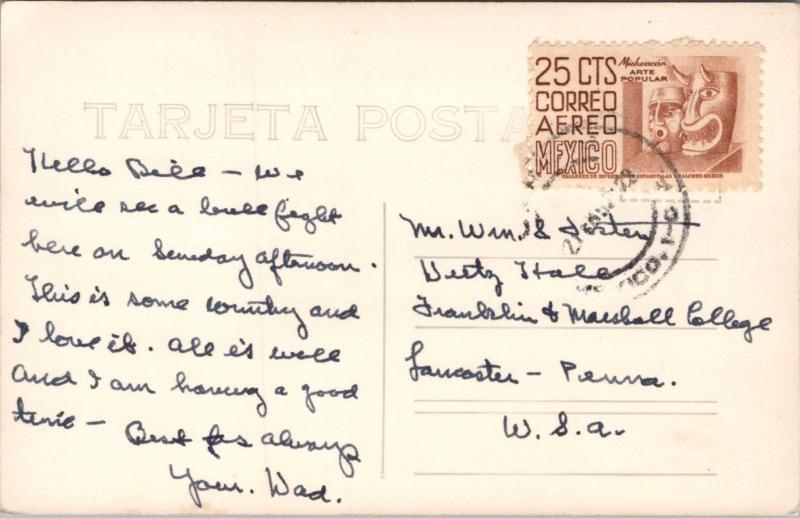 TARJETA POSTA
25 CTS
CORREO
AEREO
MEXICO
Michoacán
ARTE
POPULAR
Hello Bill — we
will see a bull fight
here on Sunday afternoon.
This is some country and
I love it. All is well
and I am having a good
time — Best as always
Your Dad.
Mr. Wm. S.
Dietz Hall
Franklin & Marshall College
Lancaster — Penna.
U.S.A.